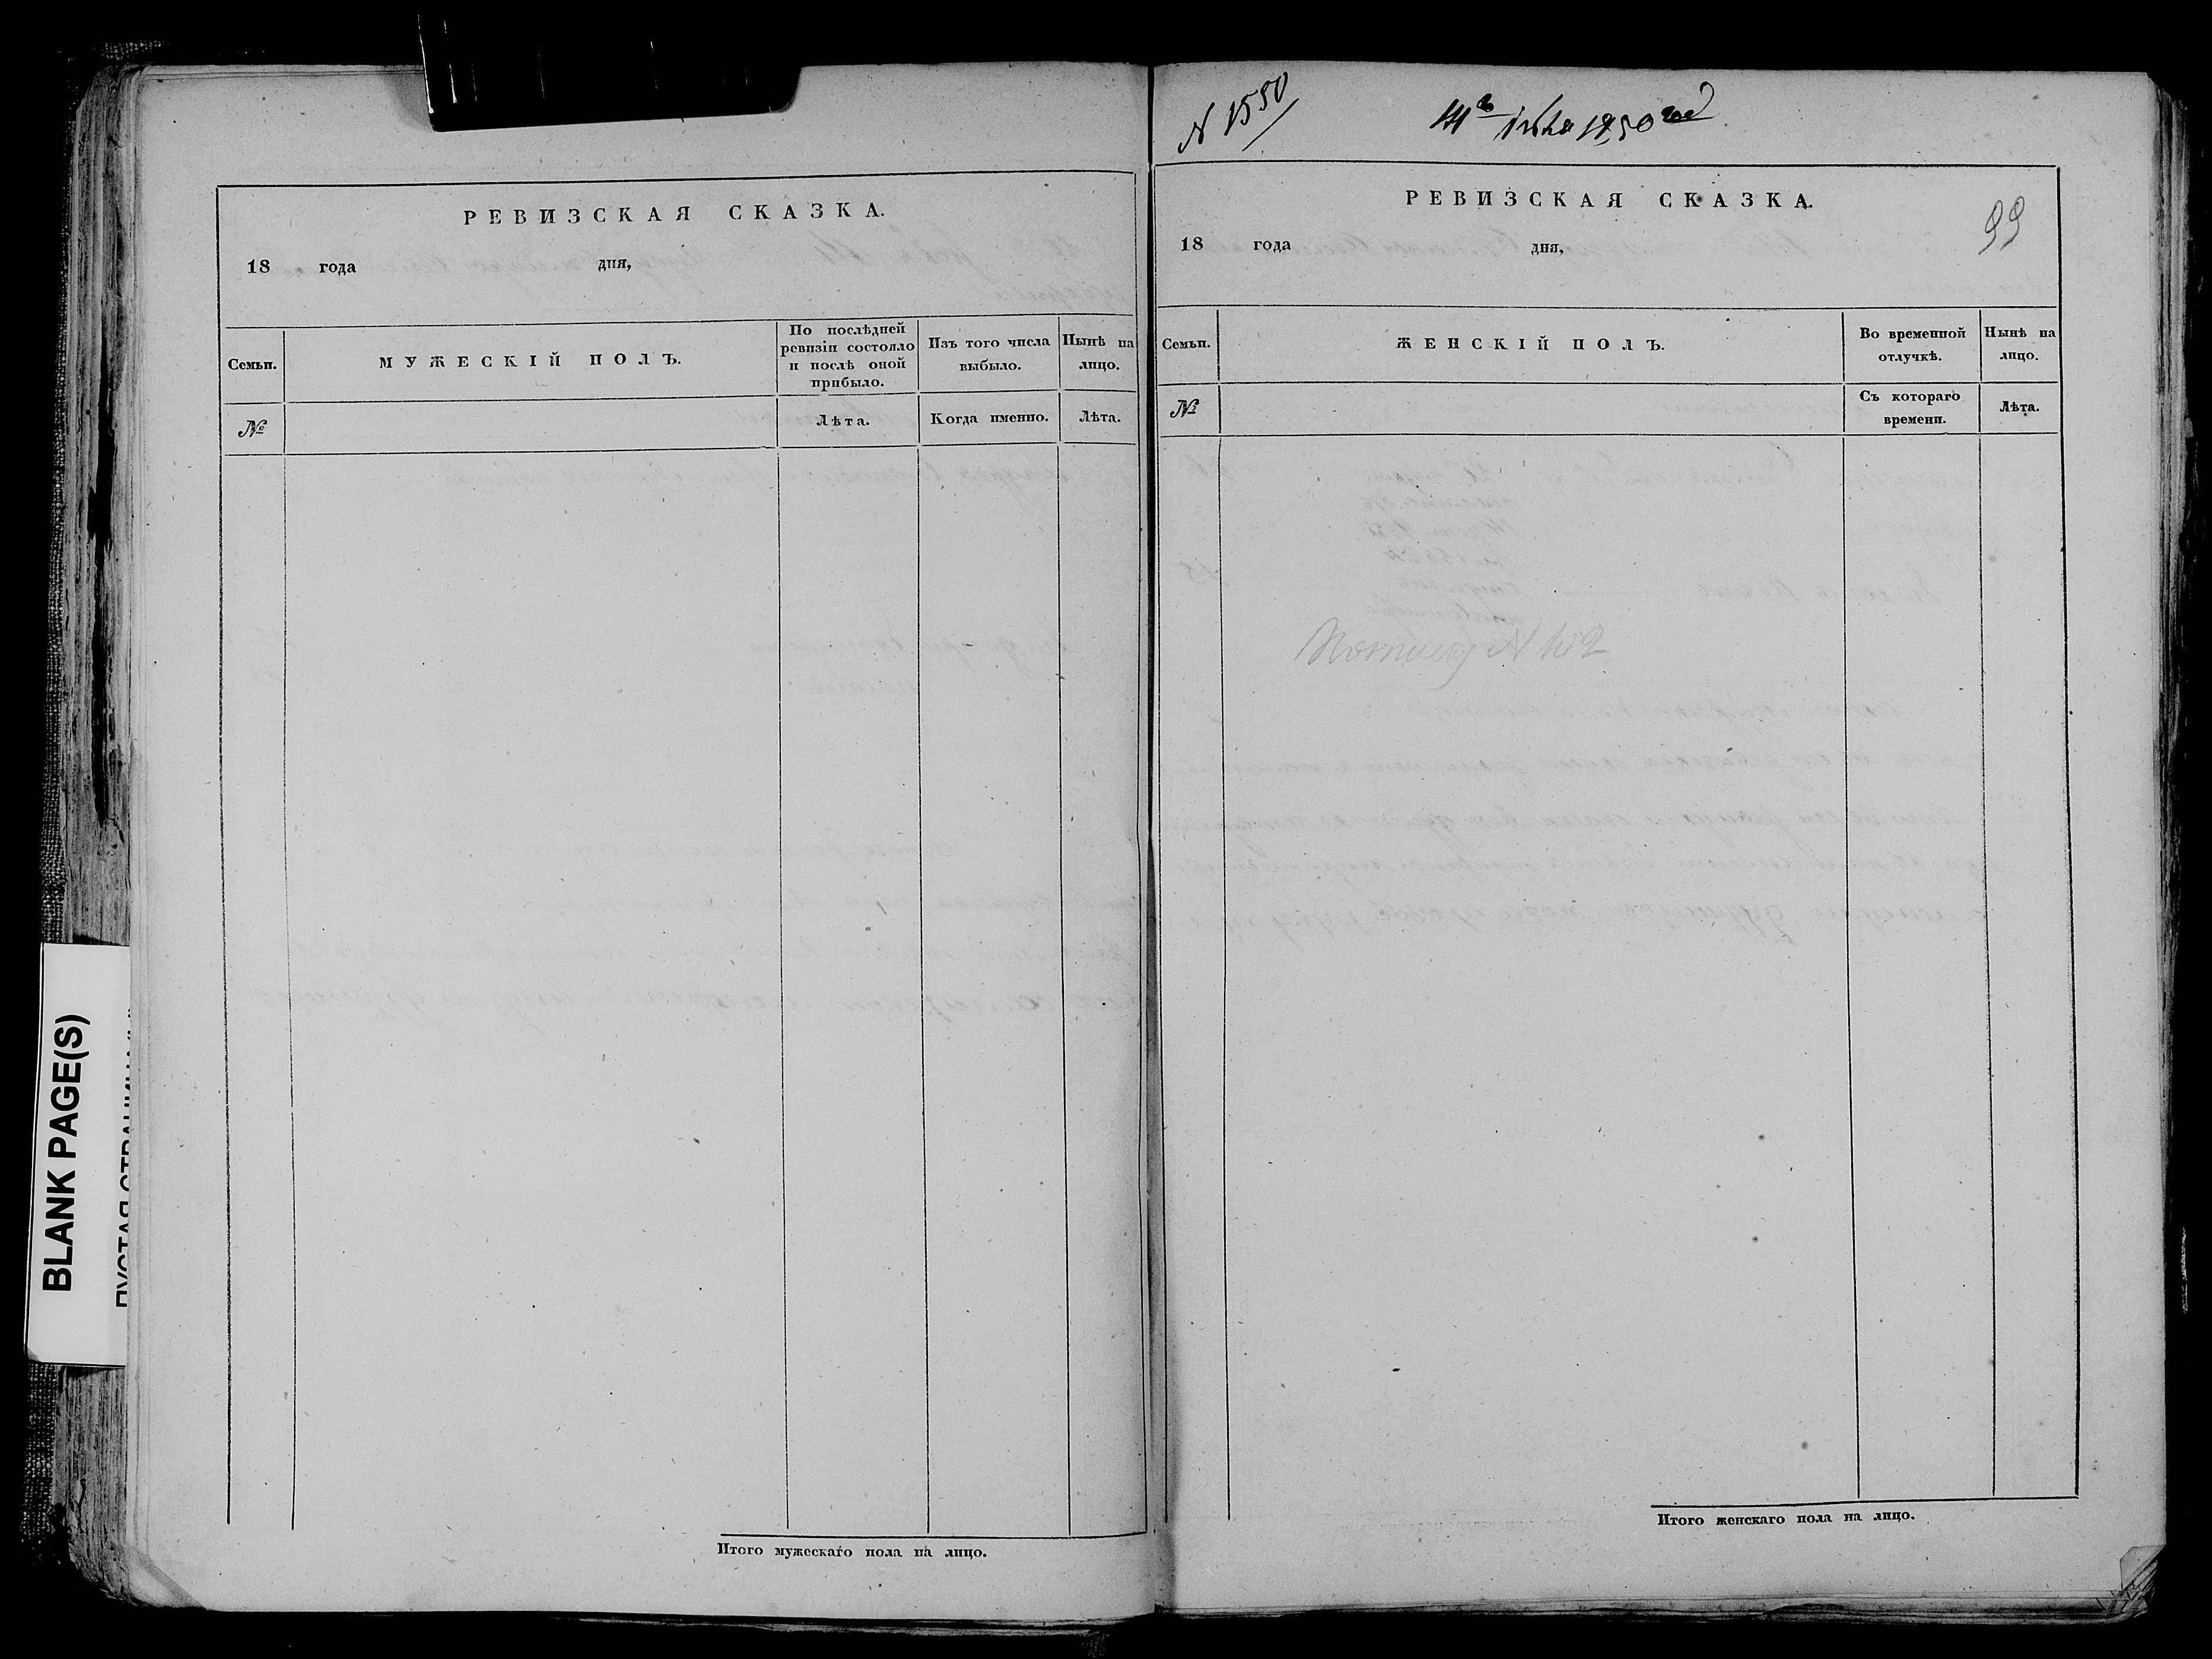 BLANK PAGE(S)
РЕВИЗСКАЯ СКАЗКА.
18 года дня,
Семьи.
МУЖЕСКІЙ ПОЛЪ.
По послѣдней
ревизіи состояло
и послѣ оной
прибыло.
Изъ того числа
выбыло.
Нынѣ на
лицо.
№
Лѣта.
Когда именно.
Лѣта.
Итого мужескаго пола на лицо.
N 1550
РЕВИЗСКАЯ СКАЗКА.
99
18 года дня,
Семьи.
ЖЕНСКІЙ ПОЛЪ.
Во временной
отлучкѣ.
Нынѣ на
лицо.
№
Съ котораго
времени.
Лѣта.
Итого женскаго пола на лицо.